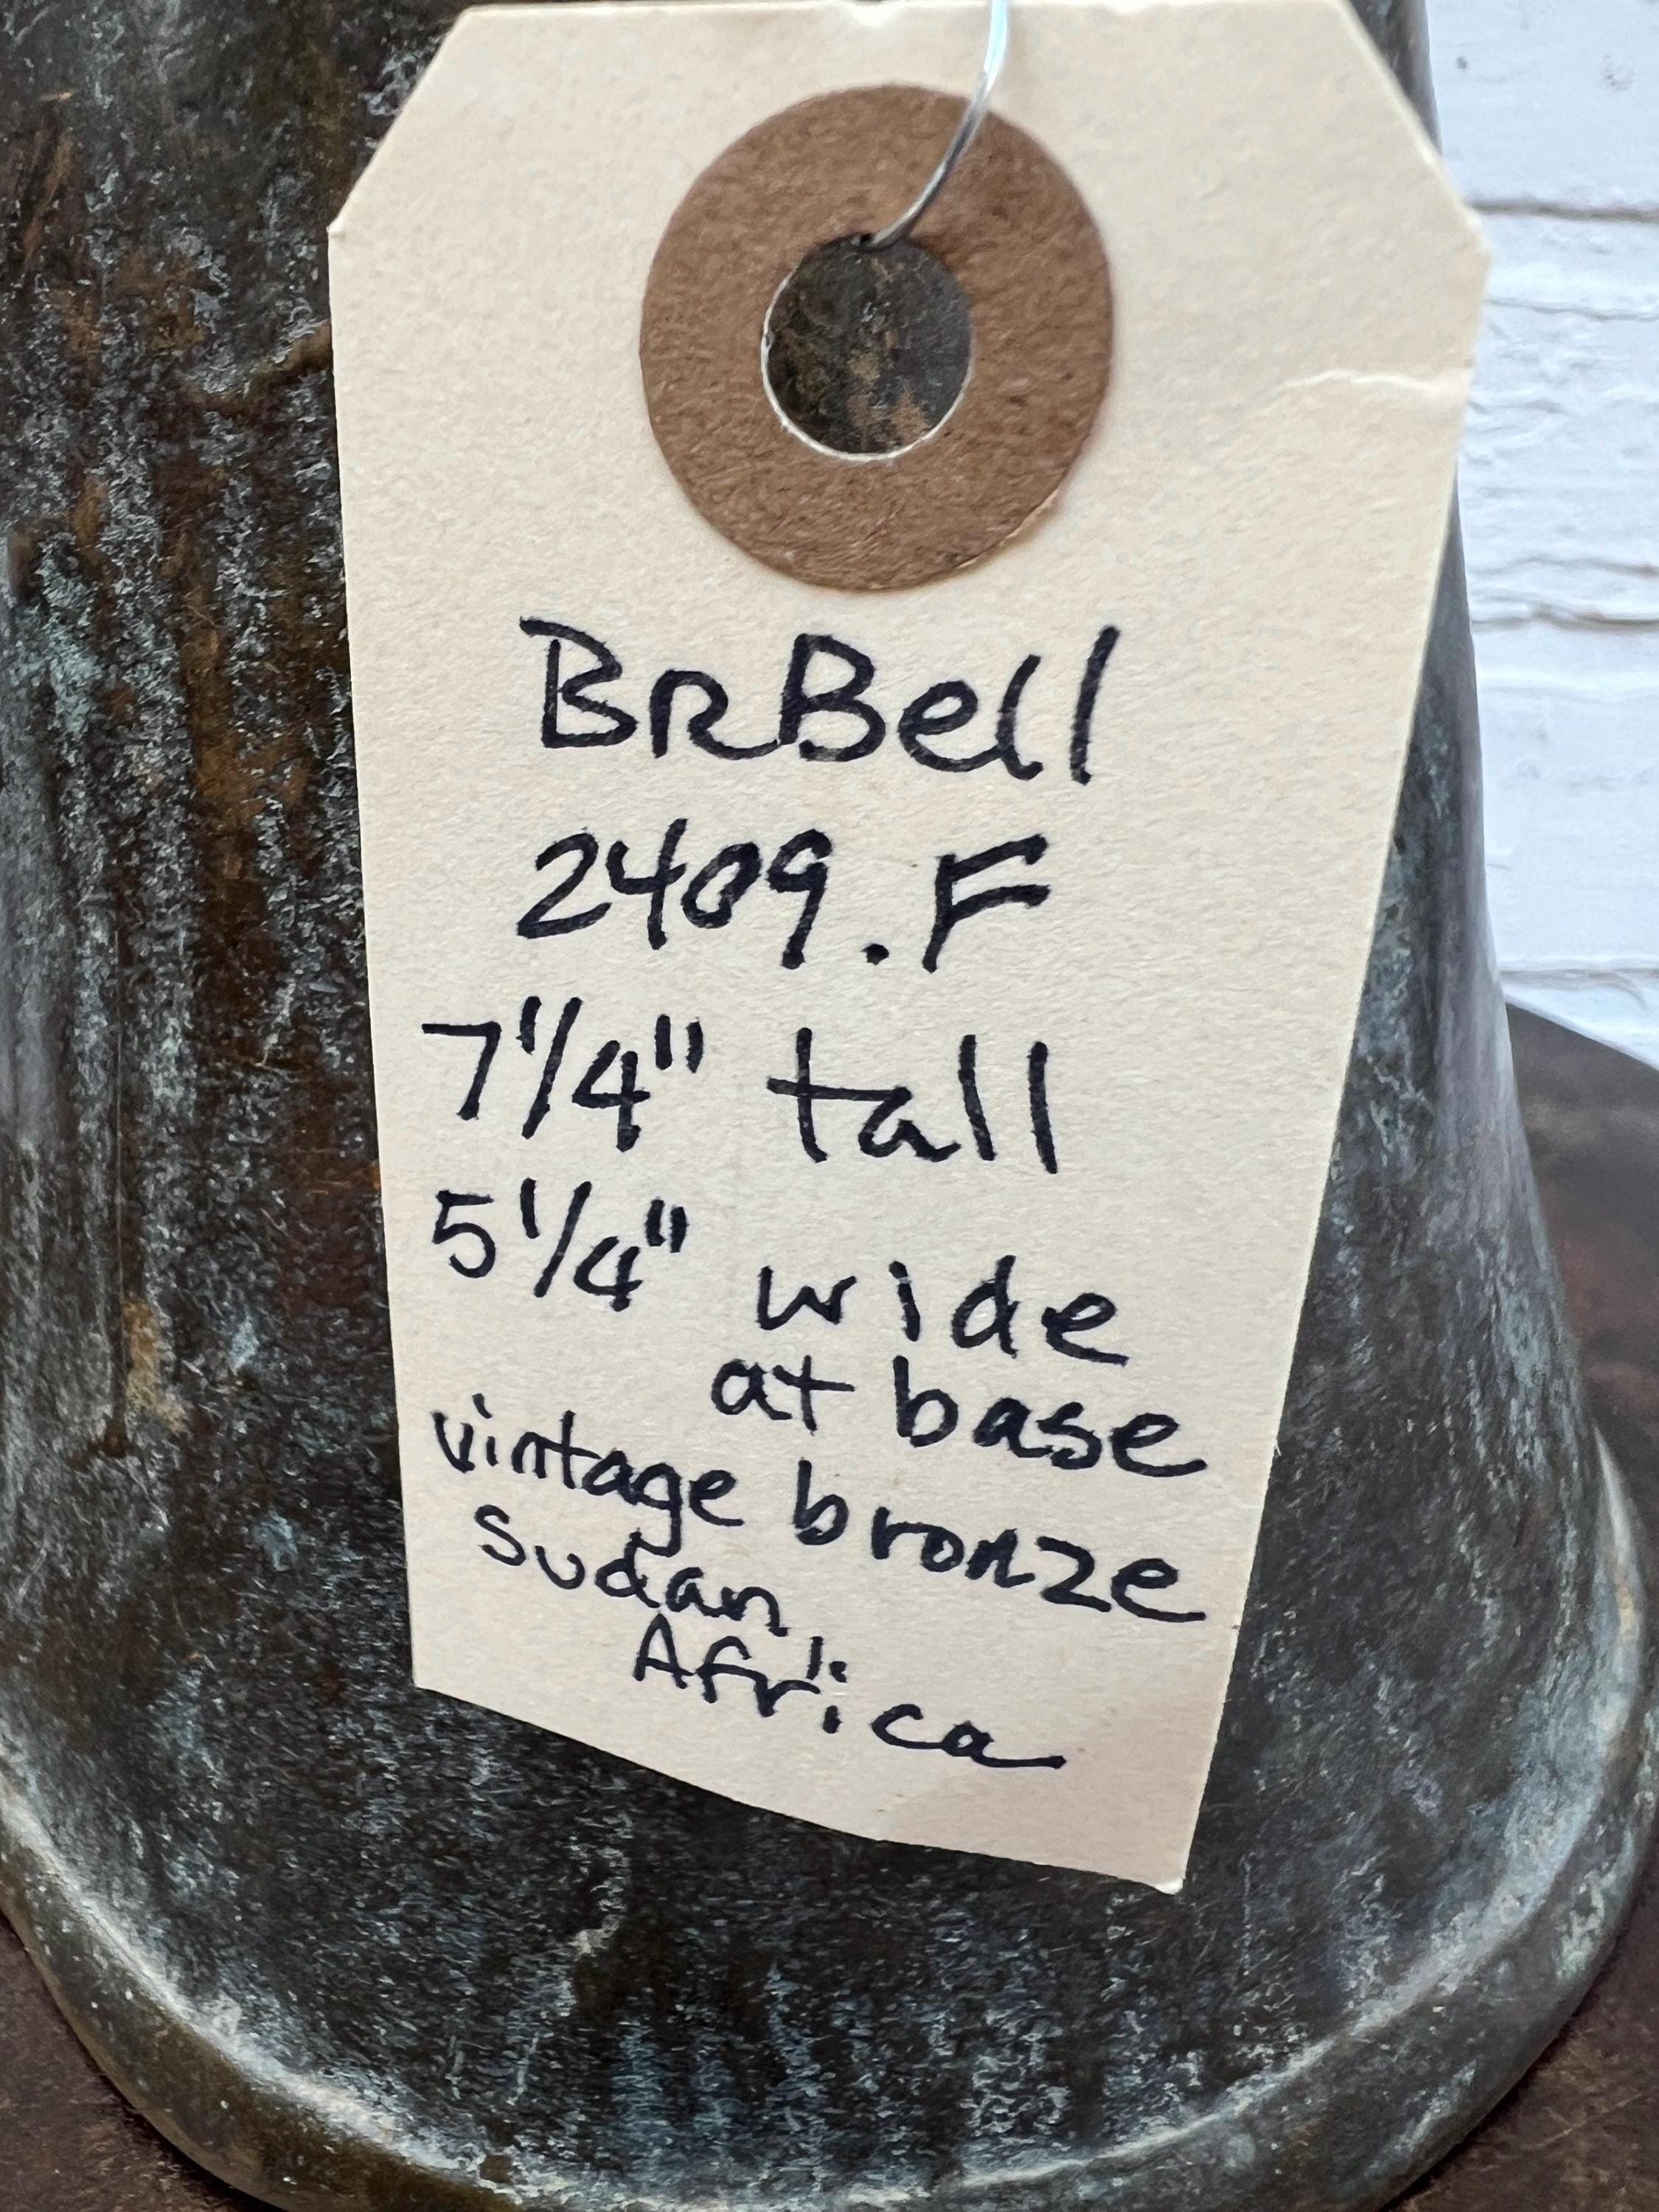 BRBell
2409.F
7 1/4" tall
5 1/4" wide
at base
vintage bronze
Sudan
Africa